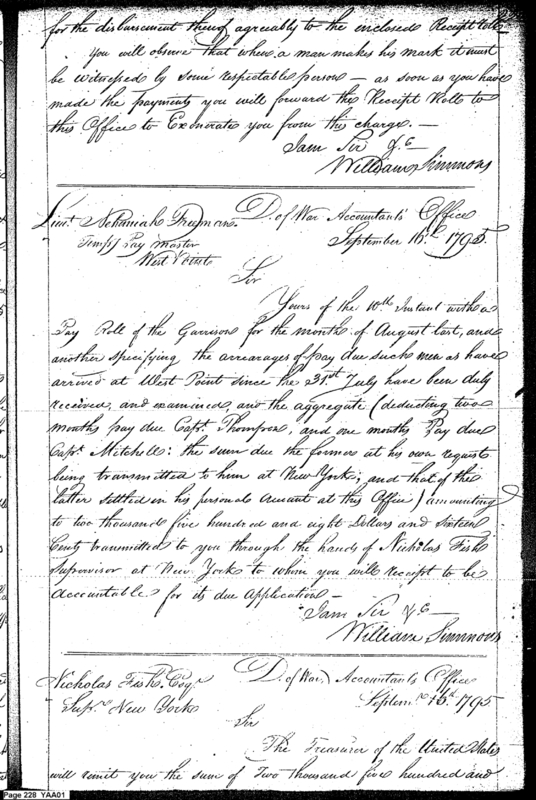 for the disbursement thereof agreeably to the enclosed Receipt Rolls
You will observe that when a man makes his mark it must
be witnessed by some respectable person — as soon as you have
made the payments you will forward the Receipt Rolls to
this Office to Exonerate you from this charge. —
I am Sir &c —
William Simmons
Lieut. Nehemiah Freeman
D. of War Accountants Office
Tempy Pay Master
September 16th 1795.
West Point
Sir
Yours of the 10th Instant with a
Pay Roll of the Garrison for the month of August last, and
another specifying the arrearages of pay due such men as have
arrived at West Point since the 31st July have been duly
received, and examined, and the aggregate (deducting two
months pay due Capt. Thompson, and one months Pay due
Capt. Mitchell: the sum due the former at his own request
being transmitted to him at New York; and that of the
latter settled in his personal account at this Office) amounting
to two thousand five hundred and eight Dollars and sixteen
Cents transmitted to you through the hands of Nicholas Fish
Supervisor at New York to whom you will receipt to be
accountable for its due application —
I am Sir &c —
William Simmons
Nicholas Fish Esqr
D. of War Accountants Office
Supr. New York
Septemr 16th 1795
Sir
The Treasurer of the United States
will remit you the sum of Two thousand five hundred and
Page 228 YAA01